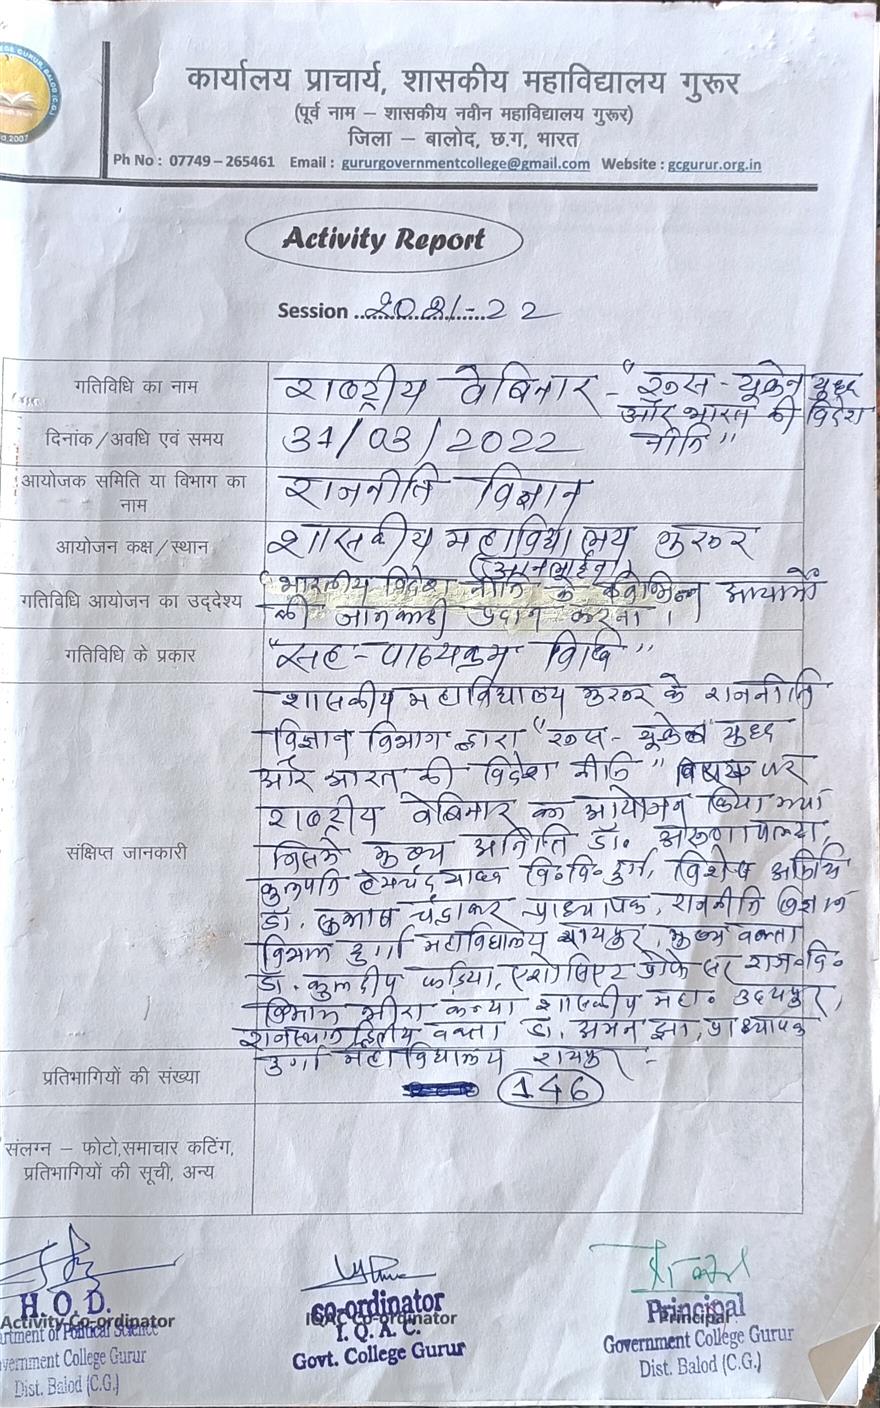 कार्यालय प्राचार्य, शासकीय महाविद्यालय गुरूर
(पूर्व नाम – शासकीय नवीन महाविद्यालय गुरूर)
जिला – बालोद, छ.ग, भारत
Ph No : 07749 – 265461 Email : gururgovernmentcollege@gmail.com Website : gcgurur.org.in
Activity Report
Session 2021-22
गतिविधि का नाम
राष्ट्रीय वेबिनार - "रूस - यूक्रेन युद्ध
और भारत की विदेश
नीति"
दिनांक/अवधि एवं समय
31/03/2022
आयोजक समिति या विभाग का
नाम
राजनीति विज्ञान
आयोजन कक्ष/स्थान
शासकीय महाविद्यालय गुरूर
(आनलाईन)
गतिविधि आयोजन का उद्देश्य
भारतीय विदेश नीति के विभिन्न आयामों
की जानकारी प्रदान करना।
गतिविधि के प्रकार
"सह - पाठ्यक्रम विधि"
संक्षिप्त जानकारी
शासकीय महाविद्यालय गुरूर के राजनीति
विज्ञान विभाग द्वारा "रूस - यूक्रेन युद्ध
और भारत की विदेश नीति" विषय पर
राष्ट्रीय वेबिनार का आयोजन किया गया
जिसमे मुख्य अतिथि डॉ. अरूणा पल्टा,
कुलपति हेमचंद यादव वि॰वि॰ दुर्ग, विशेष अतिथि
डॉ. सुभाष चंद्राकर प्राध्यापक, राजनीति विज्ञान
विभाग दुर्गा महाविद्यालय रायपुर, मुख्य वक्ता
डॉ. कुलदीप एशोसिएट प्रोफेसर राज॰वि॰
विभाग मीरा कन्या शासकीय महा॰ उदयपुर,
राजस्थान द्वितीय वक्ता डॉ. अमन झा, प्राध्यापक
दुर्गा महाविद्यालय रायपुर -
प्रतिभागियों की संख्या
146
संलग्न – फोटो,समाचार कटिंग,
प्रतिभागियों की सूची, अन्य
H. O. D.
Activity Co-ordinator
rtment of Political Science
vernment College Gurur
Dist. Balod (C.G.)
co-ordinator
IQAC Co-ordinator
I. Q. A. C.
Govt. College Gurur
Principal
Principal
Government College Gurur
Dist. Balod (C.G.)